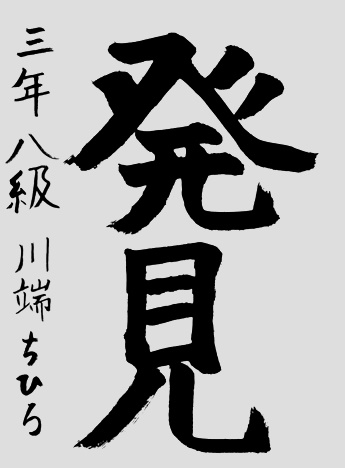 発見
三年 八級 川端ちひろ